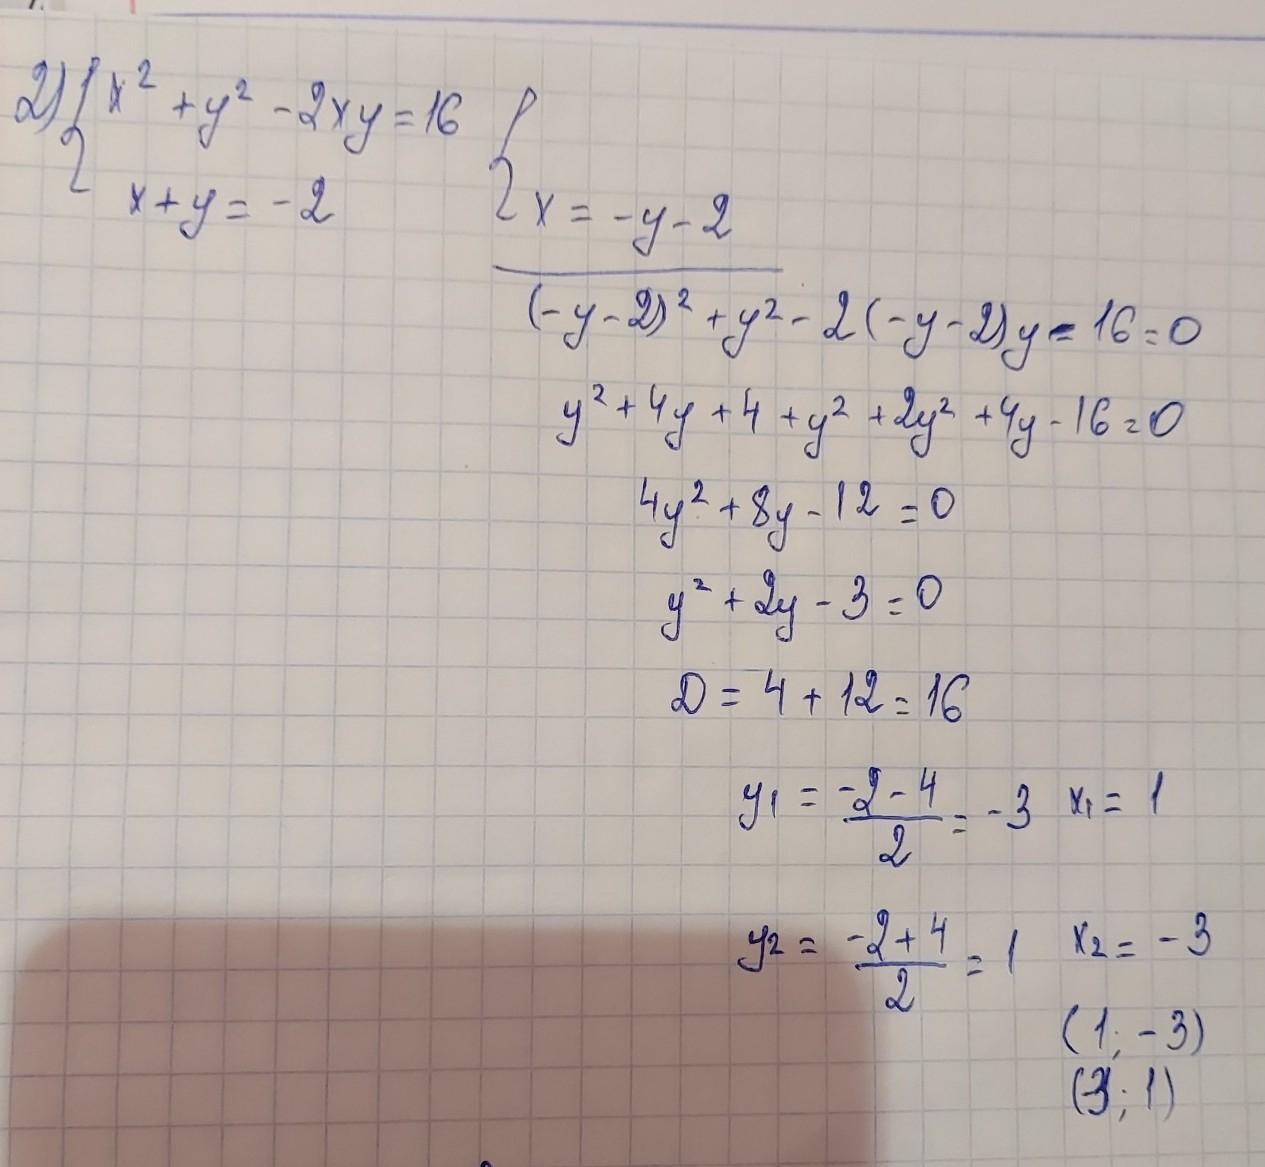 2) { x² + y² - 2xy = 16 {
x + y = -2 x = -y - 2
(-y - 2)² + y² - 2(-y - 2)y - 16 = 0
y² + 4y + 4 + y² + 2y² + 4y - 16 = 0
4y² + 8y - 12 = 0
y² + 2y - 3 = 0
D = 4 + 12 = 16
y₁ = (-2 - 4)/2 = -3 x₁ = 1
y₂ = (-2 + 4)/2 = 1 x₂ = -3
(1; -3)
(3; 1)